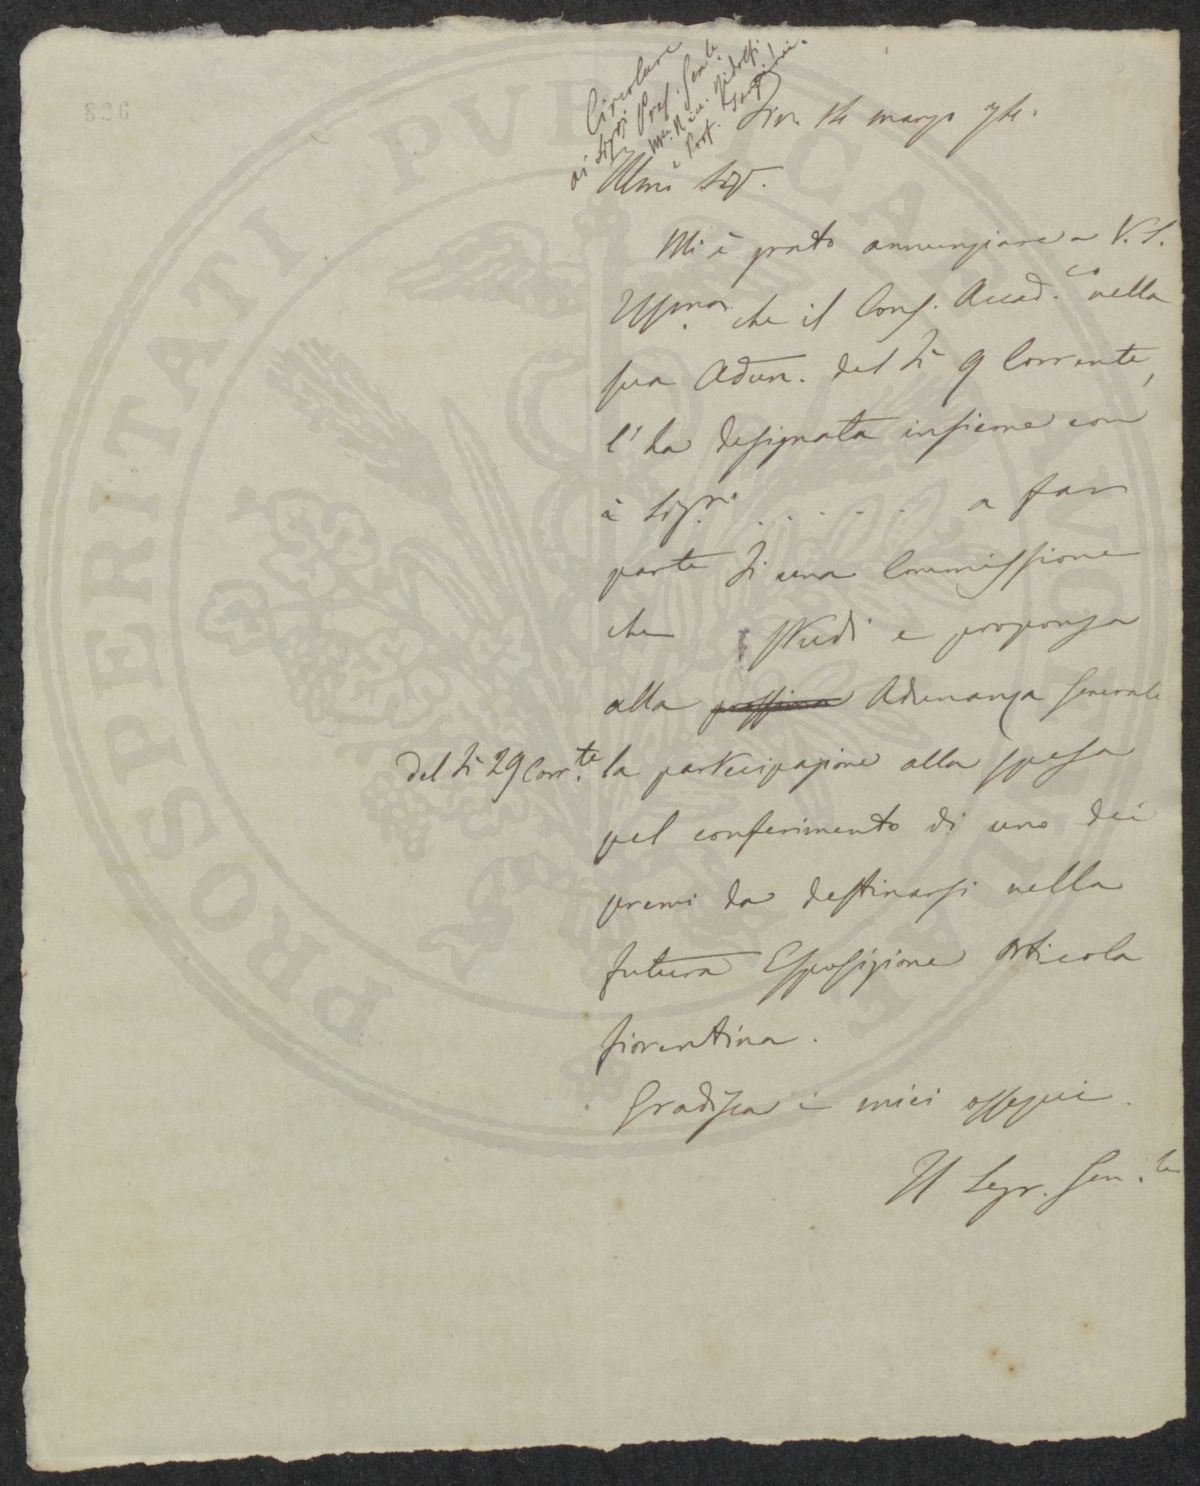 826
PROSPERITATI PVBLICAE
Circolare
ai Sig.ri Prof. Gen.le
Prof.
Fir. 14 marzo 74.
Illmo Sigr.
Mi è grato annunziare a V. S.
Illma. che il Cons. Accad.co nella
sua Adun. del dì 9 Corrente,
l'ha designata insieme con
i Sigri . . . . . a far
parte di una Commissione
che studi e proponga
alla prossima Adunanza Generale
del dì 29 Corr.te la partecipazione alla spesa
pel conferimento di uno dei
premi da destinarsi nella
futura Esposizione Orticola
fiorentina.
Gradisca i miei ossequi.
Il Segr. Gen.le